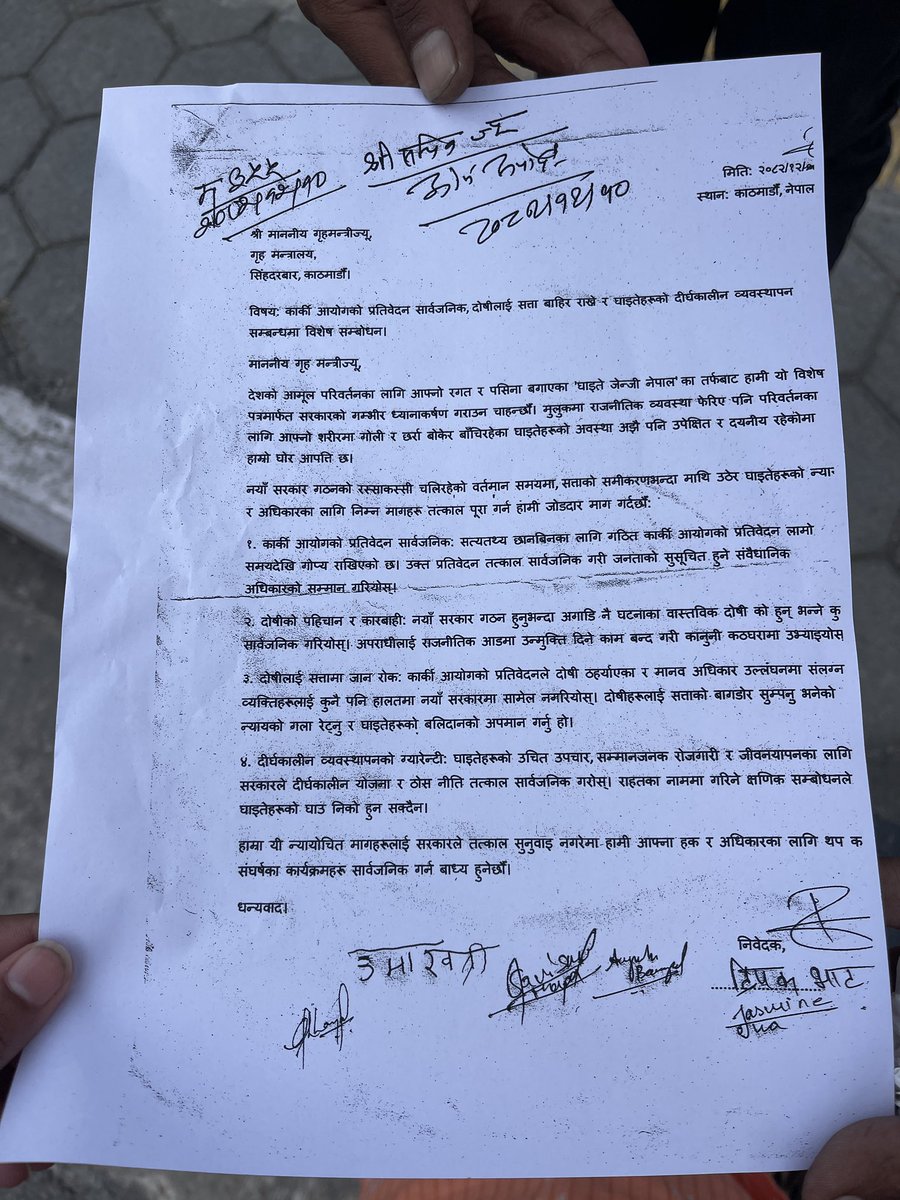 श्री सचिव ज्यू
२०८२।१२।१०
मिति: २०८२/१२/
स्थान: काठमाडौँ, नेपाल
श्री माननीय गृहमन्त्रीज्यू,
गृह मन्त्रालय,
सिंहदरबार, काठमाडौँ।
विषय: कार्की आयोगको प्रतिवेदन सार्वजनिक, दोषीलाई सत्ता बाहिर राख्ने र घाइतेहरूको दीर्घकालीन व्यवस्थापन
सम्बन्धमा विशेष सम्बोधन।
माननीय गृह मन्त्रीज्यू,
देशको आमूल परिवर्तनका लागि आफ्नो रगत र पसिना बगाएका 'घाइते जेन्जी नेपाल' का तर्फबाट हामी यो विशेष
पत्रमार्फत सरकारको गम्भीर ध्यानाकर्षण गराउन चाहन्छौँ। मुलुकमा राजनीतिक व्यवस्था फेरिए पनि परिवर्तनका
लागि आफ्नो शरीरमा गोली र छर्रा बोकेर बाँचिरहेका घाइतेहरूको अवस्था अझै पनि उपेक्षित र दयनीय रहेकोमा
हाम्रो घोर आपत्ति छ।
नयाँ सरकार गठनको रस्साकस्सी चलिरहेको वर्तमान समयमा, सत्ताको समीकरणभन्दा माथि उठेर घाइतेहरूको न्या
र अधिकारका लागि निम्न मागहरू तत्काल पूरा गर्न हामी जोडदार माग गर्दछौँ:
१. कार्की आयोगको प्रतिवेदन सार्वजनिक: सत्यतथ्य छानबिनका लागि गठित कार्की आयोगको प्रतिवेदन लामो
समयदेखि गोप्य राखिएको छ। उक्त प्रतिवेदन तत्काल सार्वजनिक गरी जनताको सुसूचित हुने संवैधानिक
अधिकारको सम्मान गरियोस्।
२. दोषीको पहिचान र कारबाही: नयाँ सरकार गठन हुनुभन्दा अगाडि नै घटनाका वास्तविक दोषी को हुन् भन्ने कु
सार्वजनिक गरियोस्। अपराधीलाई राजनीतिक आडमा उन्मुक्ति दिने काम बन्द गरी कानुनी कठघरामा उभ्याइयोस्
३. दोषीलाई सत्तामा जान रोक: कार्की आयोगको प्रतिवेदनले दोषी ठहर्‍याएका र मानव अधिकार उल्लंघनमा संलग्न
व्यक्तिहरूलाई कुनै पनि हालतमा नयाँ सरकारमा सामेल नगरियोस्। दोषीहरूलाई सत्ताको बागडोर सुम्पनु भनेको
न्यायको गला रेट्नु र घाइतेहरूको बलिदानको अपमान गर्नु हो।
४. दीर्घकालीन व्यवस्थापनको ग्यारेन्टी: घाइतेहरूको उचित उपचार, सम्मानजनक रोजगारी र जीवनयापनका लागि
सरकारले दीर्घकालीन योजना र ठोस नीति तत्काल सार्वजनिक गरोस्। राहतका नाममा गरिने क्षणिक सम्बोधनले
घाइतेहरूको घाउ निको हुन सक्दैन।
हाम्रा यी न्यायोचित मागहरूलाई सरकारले तत्काल सुनुवाइ नगरेमा हामी आफ्ना हक र अधिकारका लागि थप क
संघर्षका कार्यक्रमहरू सार्वजनिक गर्न बाध्य हुनेछौँ।
धन्यवाद।
निवेदक,
उमा खत्री
दिपक भाट
Jasmine